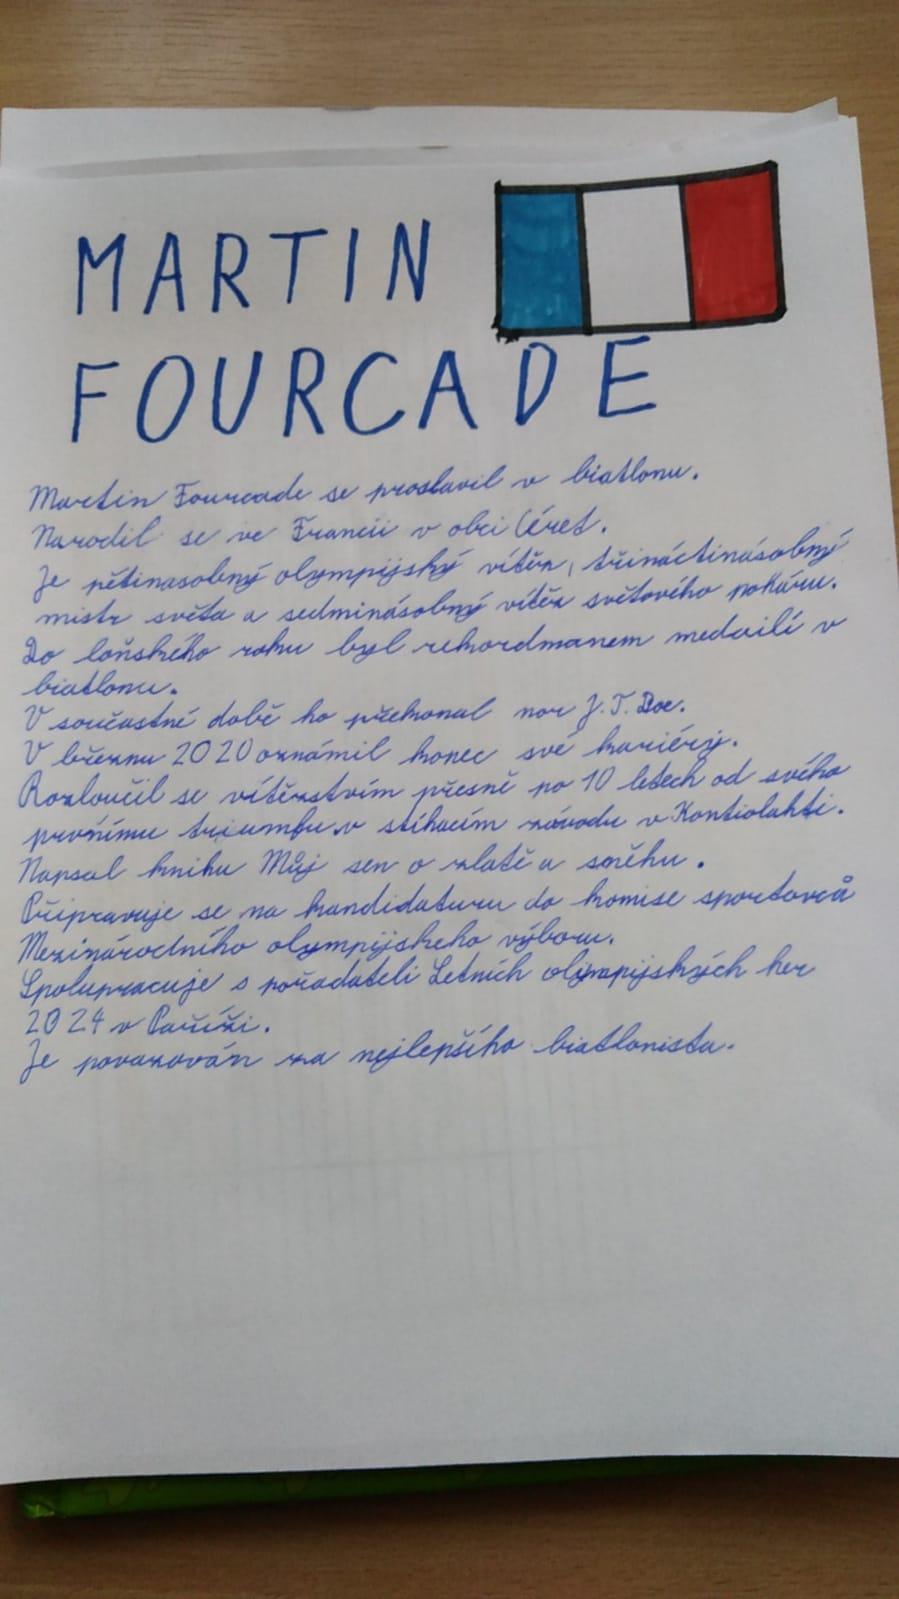 MARTIN
FOURCADE
Martin Fourcade se proslavil v biatlonu.
Narodil se ve Francii v obci Céret.
Je pětinasobný olympijský vítěz, třináctinásobný
mistr světa a sedminásobný vítěz světového pokáru.
Do loňského roku byl rekordmanem medailí v
biatlonu.
V součastné době ho překonal nor J. T. Boe.
V březnu 2020 oznámil konec své kariéry.
Rozloučil se vítězstvím přesně po 10 letech od svého
prvnímu triumfu v stíhacím závodu v Kontiolahti.
Napsal knihu Můj sen o zlatě a sněhu.
Připravuje se na kandidaturu do komise sportovců
Mezinárodního olympijskeho výboru.
Spolupracuje s pořadateli Letních olympijských her
2024 v Paříži.
Je povazován za nejlepšího biatlonistu.